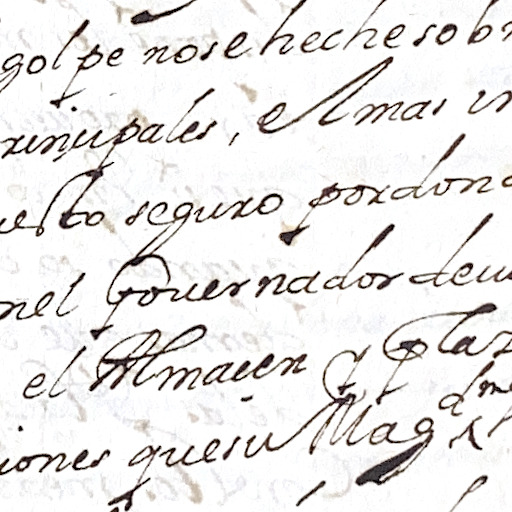 golpe nose heche sobr
rinçipales, el mas in
uesto seguro pordond
nel Gouernador deu
el Almacen y Plaz
iones quesu Magd